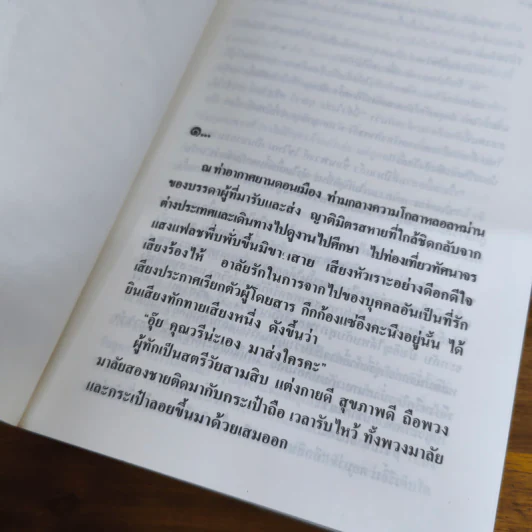 ๑...
ณ ท่าอากาศยานดอนเมือง ท่ามกลางความโกลาหลอลหม่าน
ของบรรดาผู้ที่มารับและส่ง ญาติมิตรสหายที่ใกล้ชิดกลับจาก
ต่างประเทศและเดินทางไปดูงานไปศึกษา ไปท่องเที่ยวทัศนาจร
แสงแฟลชพึ่บพั่บขึ้นมิขาดสาย เสียงหัวเราะอย่างดีอกดีใจ
เสียงร้องไห้ อาลัยรักในการจากไปของบุคคลอันเป็นที่รัก
เสียงประกาศเรียกตัวผู้โดยสาร กึกก้องแซ่อึงคะนึงอยู่นั้น ได้
ยินเสียงทักทายเสียงหนึ่ง ดังขึ้นว่า
"อุ๊ย คุณวรีน่ะเอง มาส่งใครคะ"
ผู้ทักเป็นสตรีวัยสามสิบ แต่งกายดี สุขภาพดี ถือพวง
มาลัยสองชายติดมากับกระเป๋าถือ เวลารับไหว้ ทั้งพวงมาลัย
และกระเป๋าลอยขึ้นมาด้วยเสมอออก